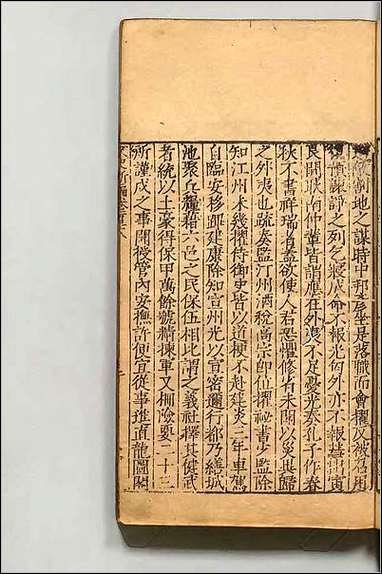 割地之謀時中邦彥坐是落職而會擢反被召用
復預諫諍之列乞寢成命不報光丐外亦不報彗出寅
艮間耿南仲輩皆謂應在外夷不足憂光奏孔子作春
秋不書祥瑞者蓋欲使人君恐懼修省未聞以災異歸
之外夷也疏奏監汀州酒稅高宗即位擢祕書少監除
知江州未幾擢侍御史皆以道梗不赴建炎三年車駕
自臨安移蹕建康除知宣州光以宣密邇行都乃繕城
池聚兵糧籍六邑之民保伍相比謂之義社擇其健武
者統以土豪得保甲萬餘號精揀軍又柵險要二十三
所謹戍之事聞授管內安撫許便宜從事進直龍圖閣